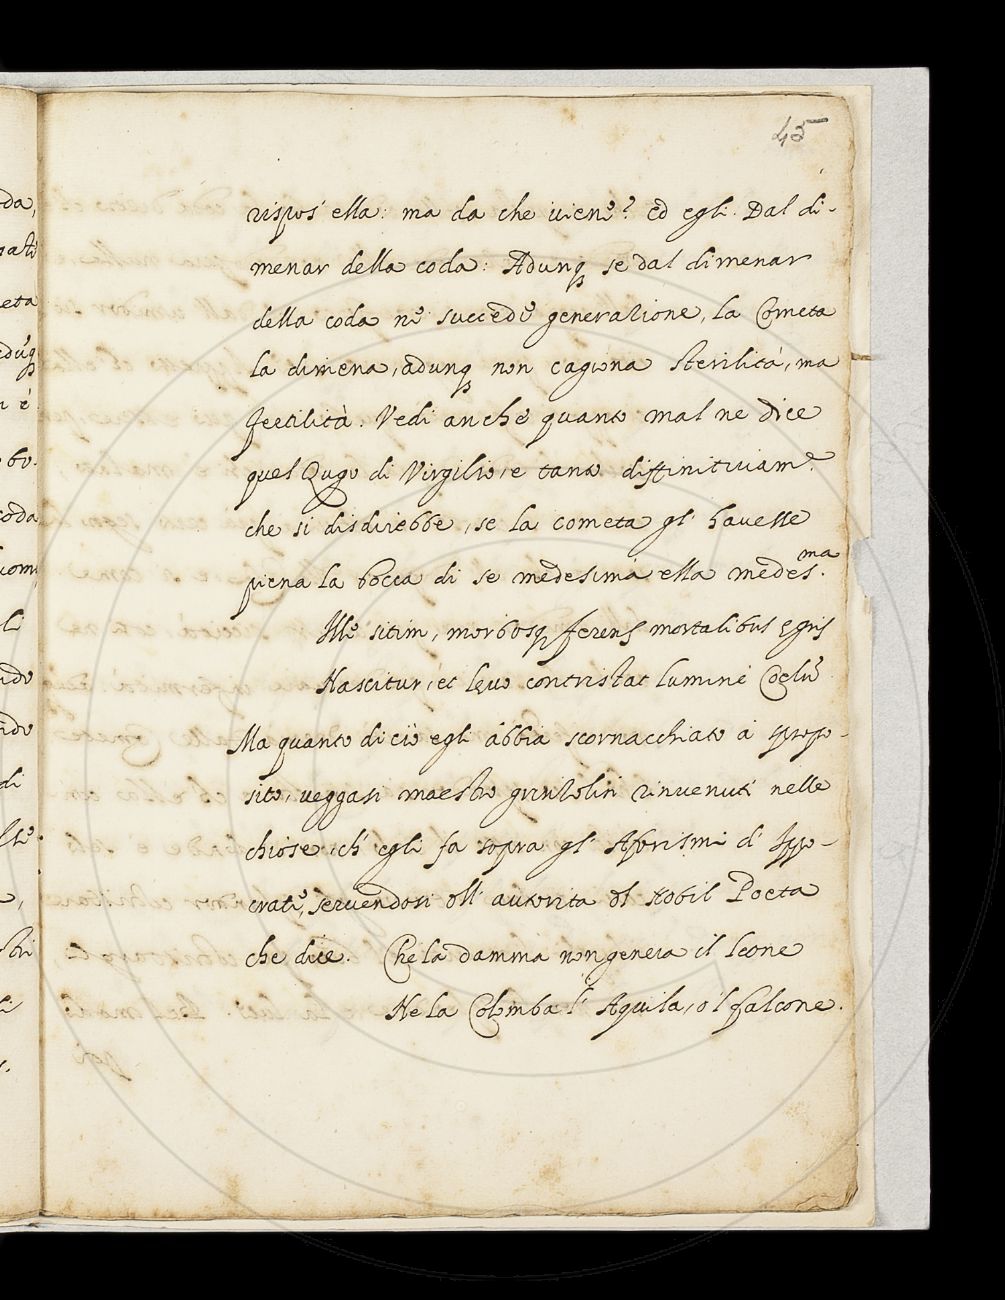 45
rispos' ella: ma da che uiene? ed egli. Dal di-
menar della coda: Adunq3 se dal dimenar
della coda nè succede generazione, la Cometa
la dimena, adunq3 non cagiona sterilità, ma
fertilità. Vedi anche quanto mal ne dice
quel di Virgilio, e tanto diffinitiuamẽ.
che si disdirebbe, se la cometa gl' hauesse
piena la bocca di se medesima ella medesma.
Ille sitim, morbosq3 ferens mortalibus ęgris
Nascitur, et lęuo contristat lumine Coelũ
Ma quanto di ciò egli abbia scornacchiato à spropo-
sito, ueggasi maestro grintolin rinuenuti nelle
chiose, ch' egli fa sopra gl' Aforismi d' Ippo-
crate, seruendosi dll' autorita dl Nobil Poeta
che dice. Che la damma non genera il leone
Ne la Colomba l' Aquila, o'l falcone.
da,
eta
è
bo.
coda
li
di